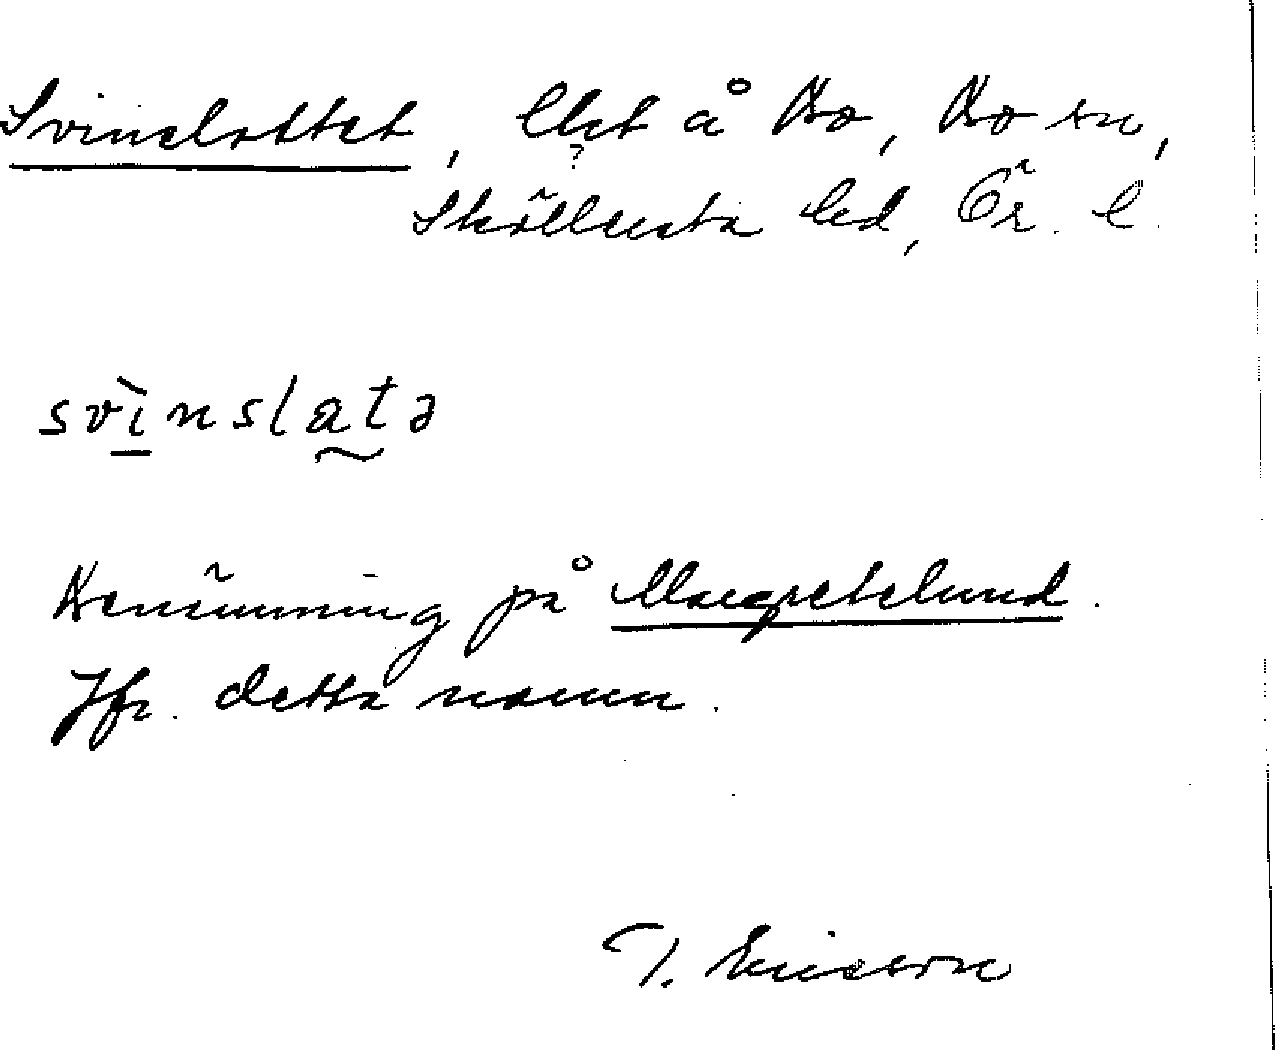 Svinslottet, å Bo, Bo sn,
?
Sköllersta hd, Ör. l.
svìnslatə
Benämning på Margretelund.
Jfr. detta namn.
T. Ericsson